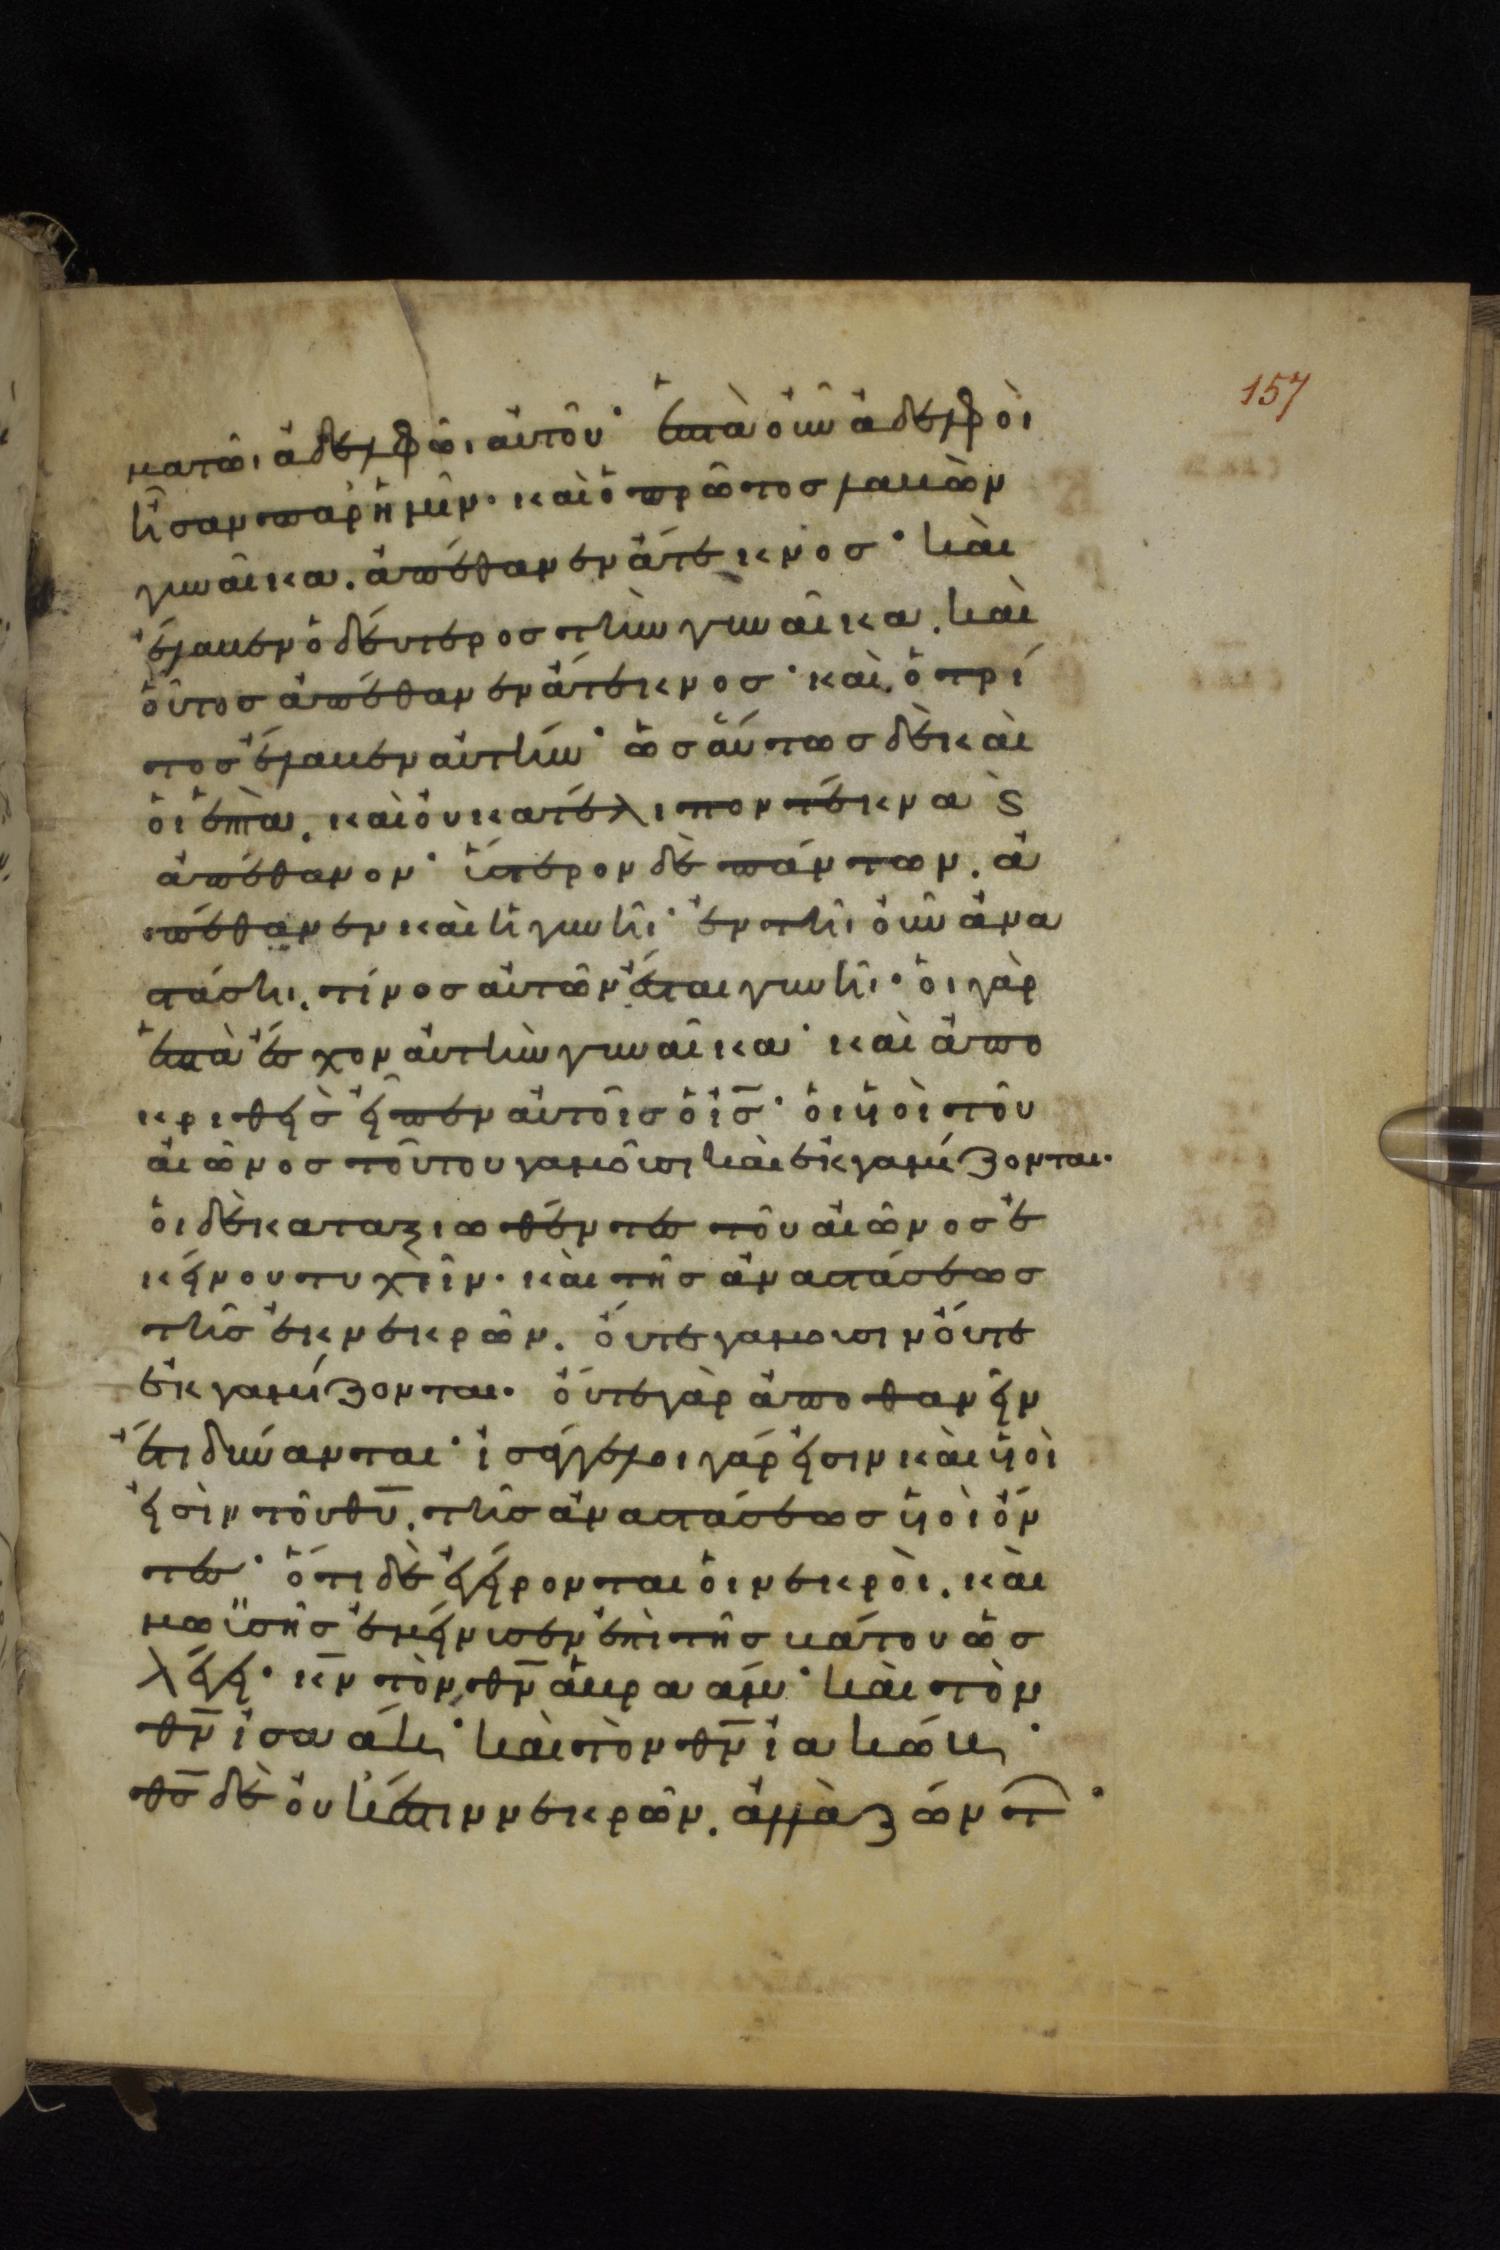 157
ματῶι ἀδελφῶι αὐτοῦ· ἑπτὰ οὖν ἀδελφοὶ
ἦσαν παρ' ἡμῖν· καὶ ὁ πρῶτος λαβὼν
γυναῖκα. ἀπέθανεν ἄτεκνος· καὶ
ἔλαβεν ὁ δεύτερος τὴν γυναῖκα. καὶ
οὗτος ἀπέθανεν ἄτεκνος· καὶ, ὁ τρί
τος ἔλαβεν αὐτήν· ὡσαύτως δὲ καὶ
οἱ ἑπτὰ. καὶ οὐ κατέλιπον τέκνα ϛ
ἀπέθανον· ὕστερον δὲ πάντων. ἀ
πέθανεν καὶ ἡ γυνῆ· ἐν τῆι οὖν ἀνα
στάσηι. τίνος αὐτῶν ἔσται γυνῆ· οἱ γὰρ
ἑπτὰ ἔσχον αὐτὴν γυναῖκα· καὶ ἀπο
κριθεὶς εἶπεν αὐτοῖς ὁ ἰς̅· οἱ υἱοὶ τοῦ
αἰῶνος τούτου γαμοῦσι καὶ ἐκγαμίζονται·
οἱ δὲ καταξιωθέντες τοῦ αἰῶνος ἐ
κείνου τυχεῖν· καὶ τῆς ἀναστάσεως
τῆς ἐκ νεκρῶν. οὔτε γαμοῦσιν οὔτε
ἐκγαμίζονται· οὔτε γὰρ ἀποθανεῖν
ἔτι δύνανται· ἰσάγγελοι γάρ εἰσιν καὶ υἱοὶ
εἰσὶν τοῦ θυ̅. τῆς ἀναστάσεως υἱοὶ ὄν
τες· ὅτι δὲ ἐγείρονται οἱ νεκροὶ. καὶ
μωϊσῆς ἐμήνυσεν ἐπὶ τῆς βάτου ὡς
λέγει· κν̅ τὸν θν̅ ἀβρααάμ· καὶ τὸν
θν̅ ἰσαάκ· καὶ τὸν θν̅ ἰακώβ·
θς̅ δὲ οὐκ ἔστιν νεκρῶν. ἀλλὰ ζώντ·